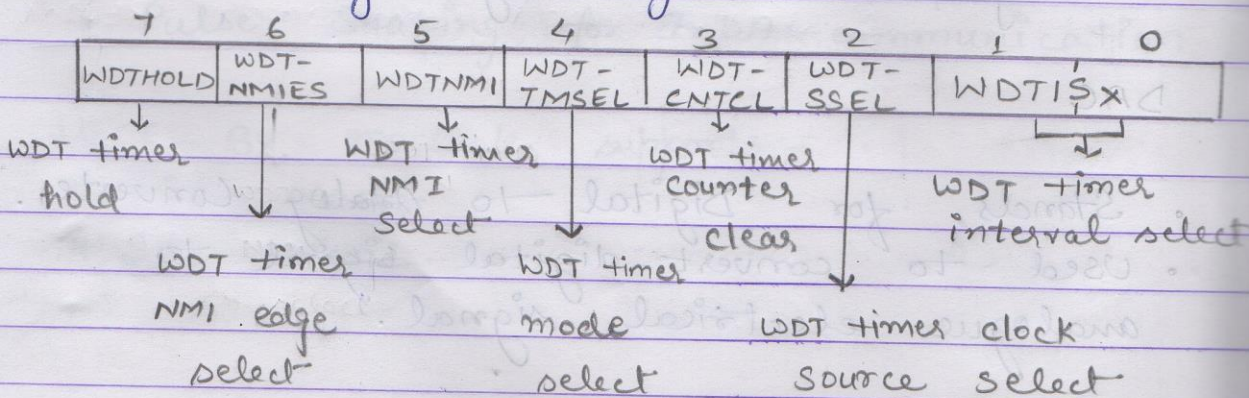 7 6 5 4 3 2 1 0
WDTHOLD WDT-NMIES WDTNMI WDT-TMSEL WDT-CNTCL WDT-SSEL WDTISx
WDT timer
hold
WDT timer
NMI edge
select
WDT timer
NMI
select
WDT timer
mode
select
WDT timer
counter
clear
WDT timer clock
source select
WDT timer
interval select